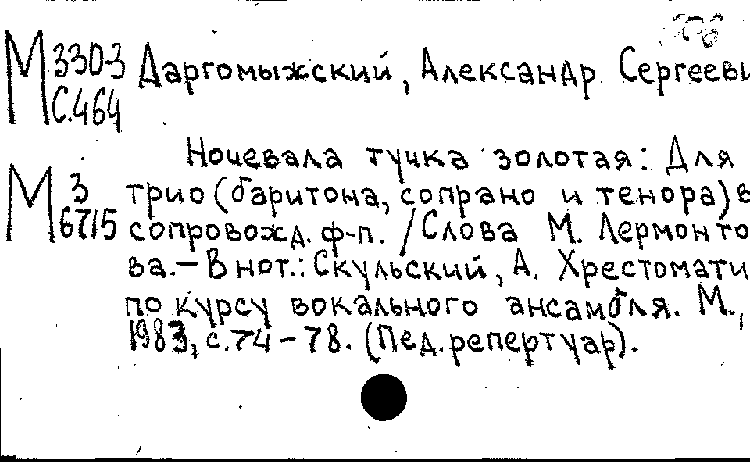 М 3303 Даргомыжский, Александр Сергееви
С.464
Ночевала тучка золотая: Для
М 3 трио (баритона, сопрано и тенора) в
6715 сопровожд. ф-п. / Слова М. Лермонто
ва. – В нот.: Скульский, А. Хрестомати
по курсу вокального ансамбля. М.,
1983, с. 74 – 78. (Пед. репертуар).